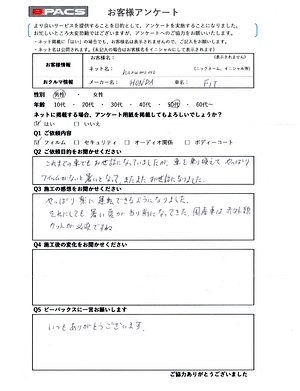 B-PACS お客様アンケート
より良いサービスを提供することを目的として、アンケートを実施することになりました。
お忙しいところ大変恐縮ではございますが、アンケートへのご協力をお願いいたします。
・ネット掲載に「はい」の場合でも、お客様名は表示されませんので、ご記入をお願いします。
・ネット名は公開されます。(未記入の場合はお客様名をイニシャルにして表示されます)
お客様情報 お客様名: (表示されません)
ネット名: (ニックネーム、イニシャル等)
おクルマ情報 メーカー名: HONDA 車名: FIT
性別 男性 ・ 女性
年齢 10代 ・ 20代 ・ 30代 ・ 40代 ・ 50代 ・ 60代～
ネットに掲載する場合、アンケート用紙を掲載してもよろしいでしょうか?
☑はい □いいえ
Q1 ご依頼内容
☑フィルム □セキュリティ □オーディオ関係 □ボディーコート
Q2 ご依頼目的をお聞かせください
これまでの車でもお世話になっていましたが、車を乗り換えて やっぱり
フィルムがないと暑いとなって、またまたお世話になりました。
Q3 施工の感想をお聞かせください
やっぱり 楽に 運転できるようになりました。
それにしても 暑い夏が当り前になってきた 国産車は
カットが必須ですね
Q4 施工後の変化をお聞かせください
Q5 ビーパックスに一言お願いします
いつもありがとうございます。
ご協力ありがとうございました